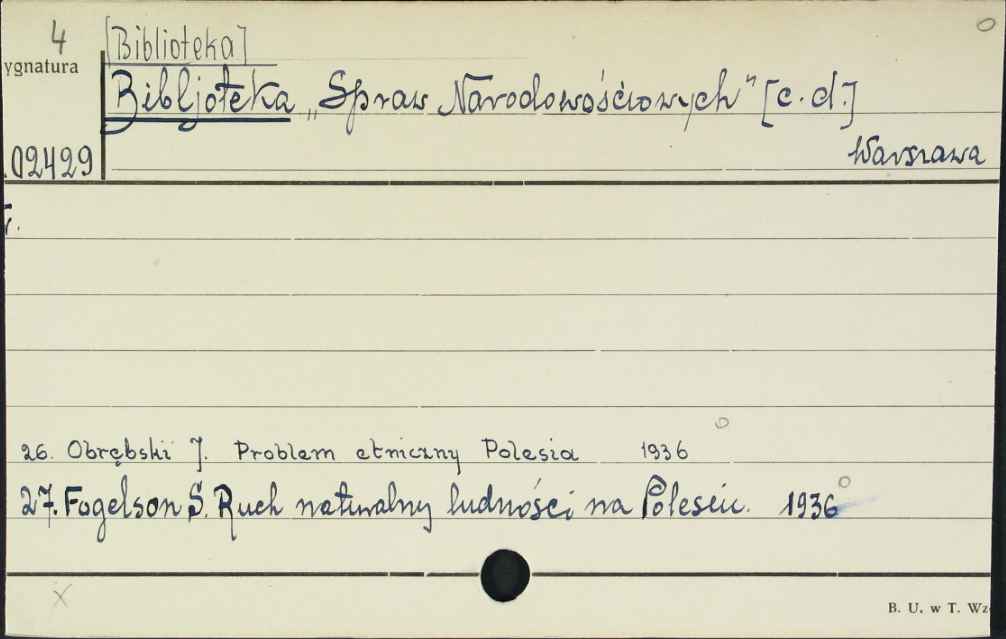 4 [Biblioteka]
ygnatura
Bibljoteka „Spraw Narodowościowych" [c.d.]
02429
Warszawa
T.
26. Obrębski J. Problem etniczny Polesia 1936
27. Fogelson S. Ruch naturalny ludności na Polesiu. 1936
B. U. w T. Wz